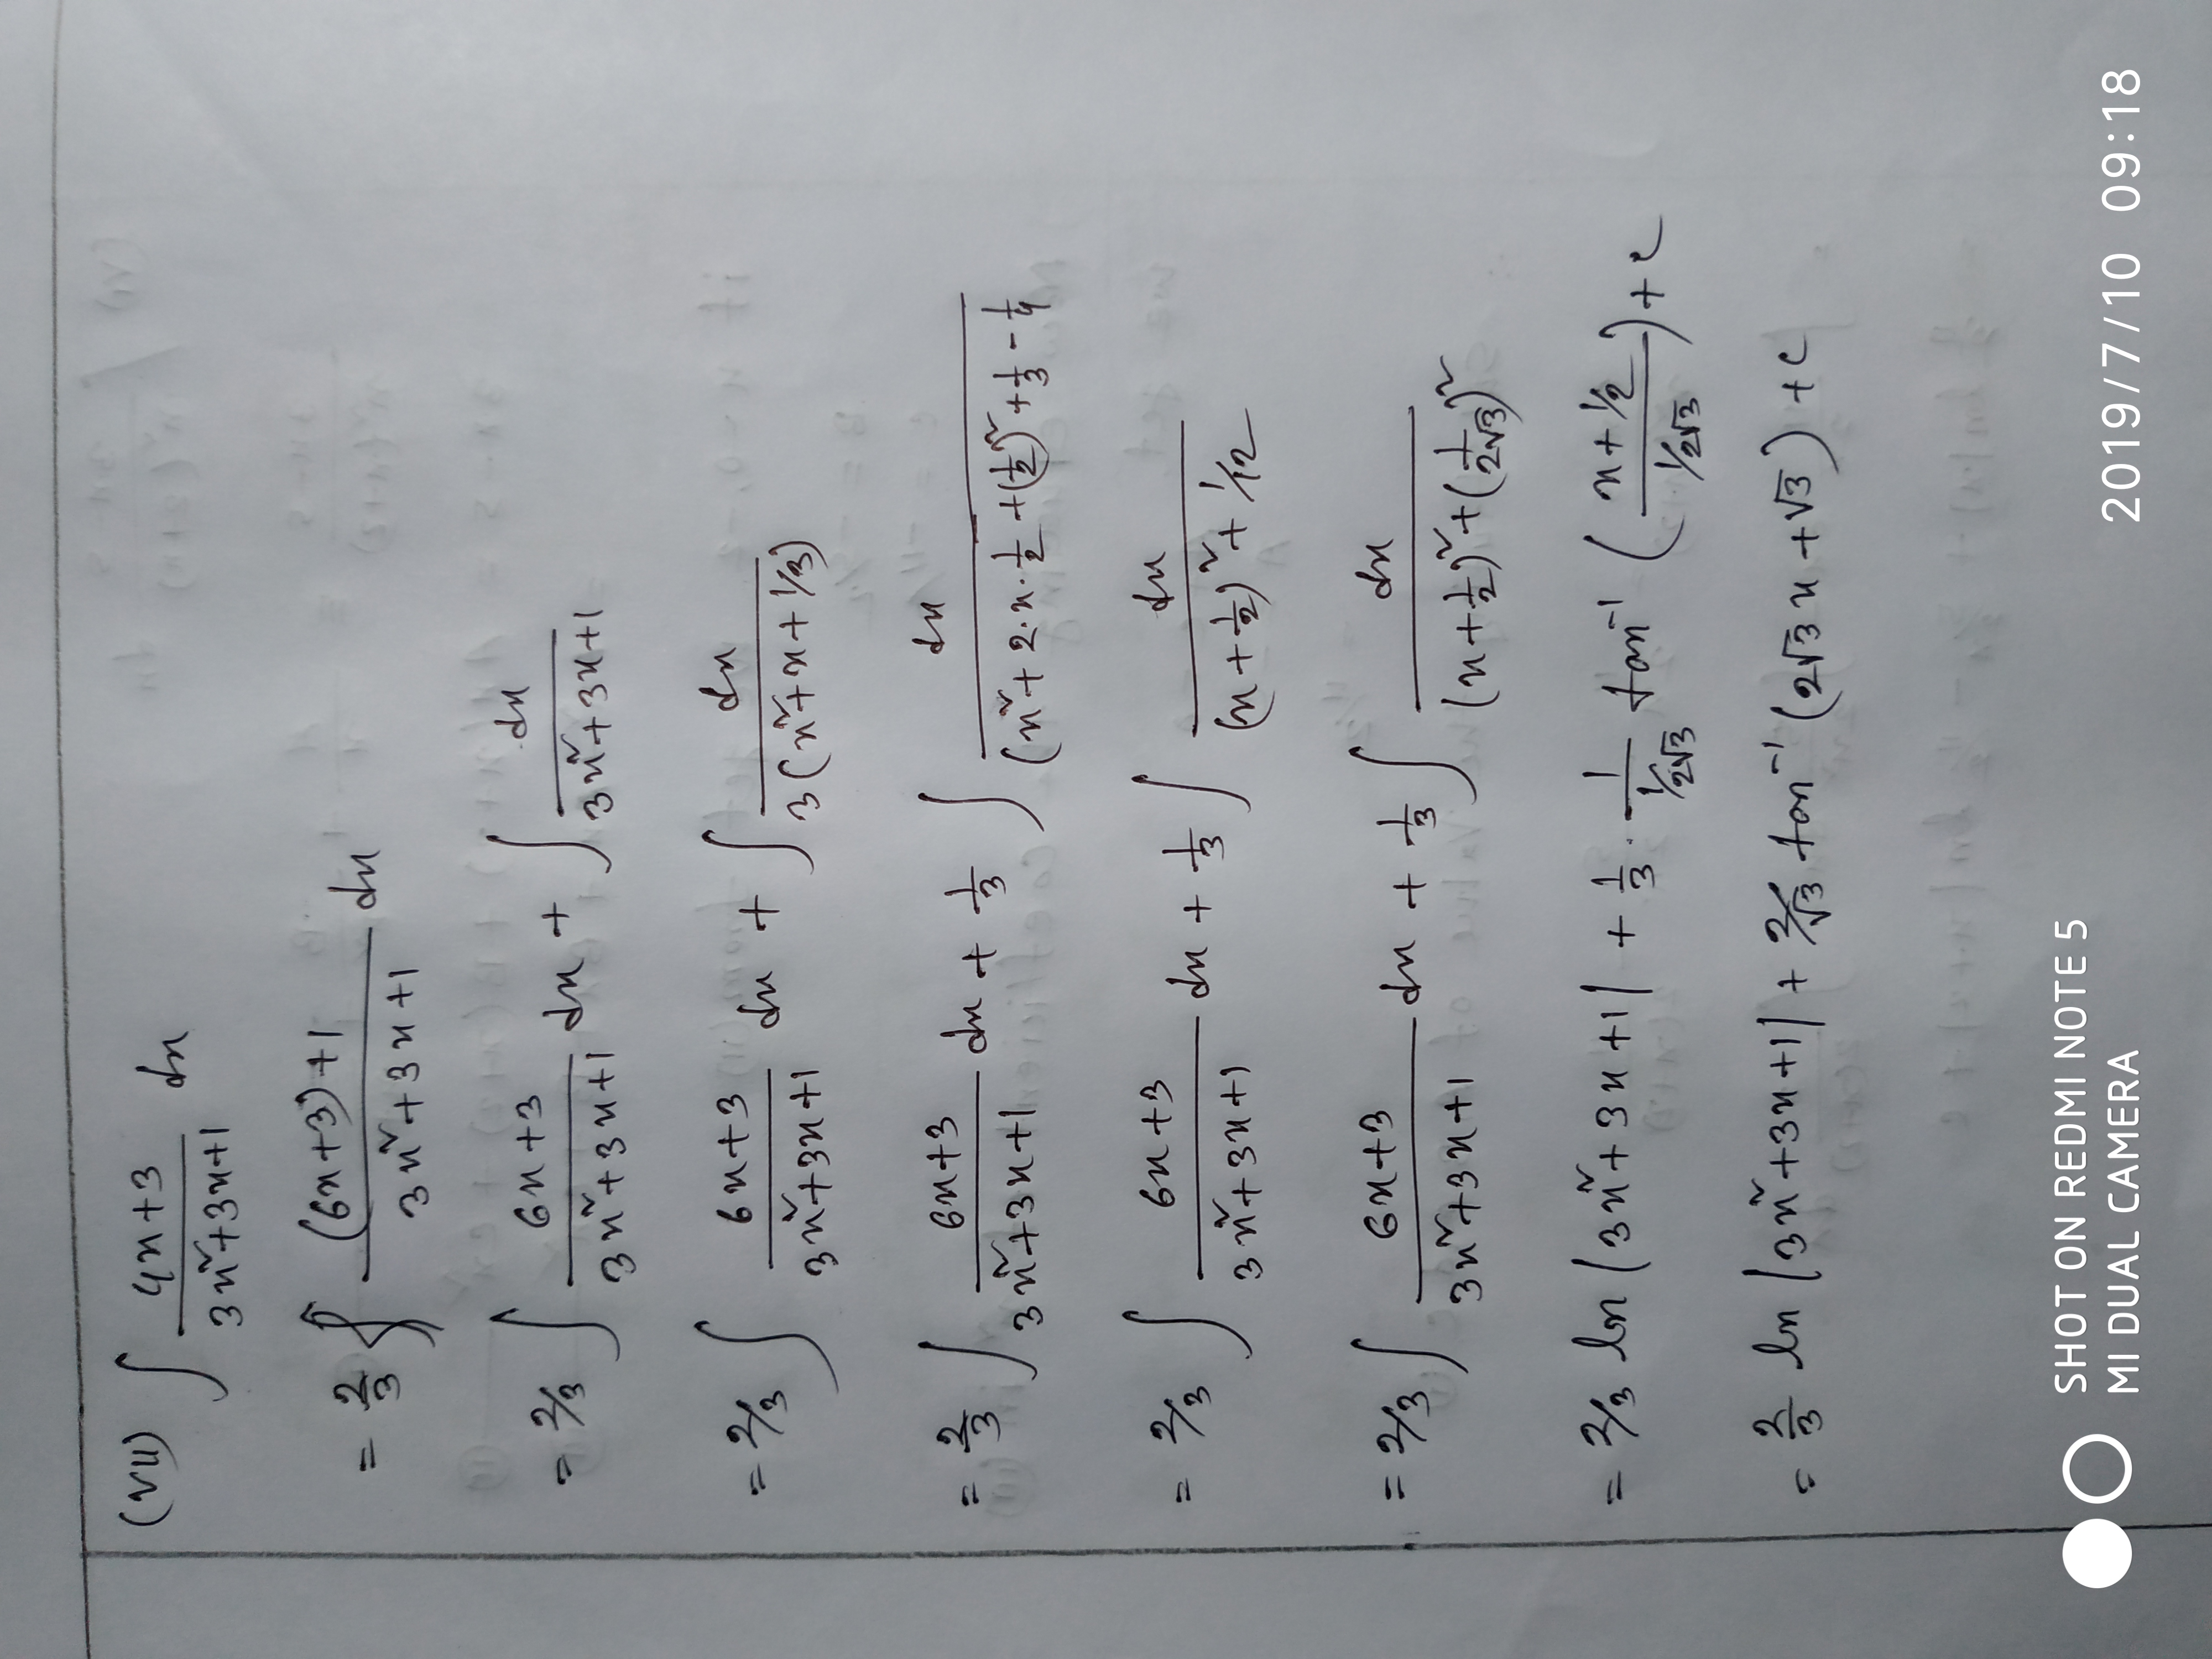 (VII) ∫ (4x+3)/(3x²+3x+1) dx
= 2/3 ∫ ((6x+3)+1)/(3x²+3x+1) dx
= 2/3 ∫ (6x+3)/(3x²+3x+1) dx + ∫ dx/(3x²+3x+1)
= 2/3 ∫ (6x+3)/(3x²+3x+1) dx + ∫ dx/(3(x²+x+1/3))
= 2/3 ∫ (6x+3)/(3x²+3x+1) dx + 1/3 ∫ dx/((x²+2·x·1/2+(1/2)²+1/3-1/4
= 2/3 ∫ (6x+3)/(3x²+3x+1) dx + 1/3 ∫ dx/((x+1/2)²+1/12)
= 2/3 ∫ (6x+3)/(3x²+3x+1) dx + 1/3 ∫ dx/((x+1/2)²+(1/2√3)²)
= 2/3 ln |3x²+3x+1| + 1/3 · 1/(1/2√3) tan⁻¹ ((x+1/2)/(1/2√3)) + c
= 2/3 ln |3x²+3x+1| + 2/√3 tan⁻¹ (2√3x+√3) + c
SHOT ON REDMI NOTE 5
MI DUAL CAMERA
2019/7/10 09:18